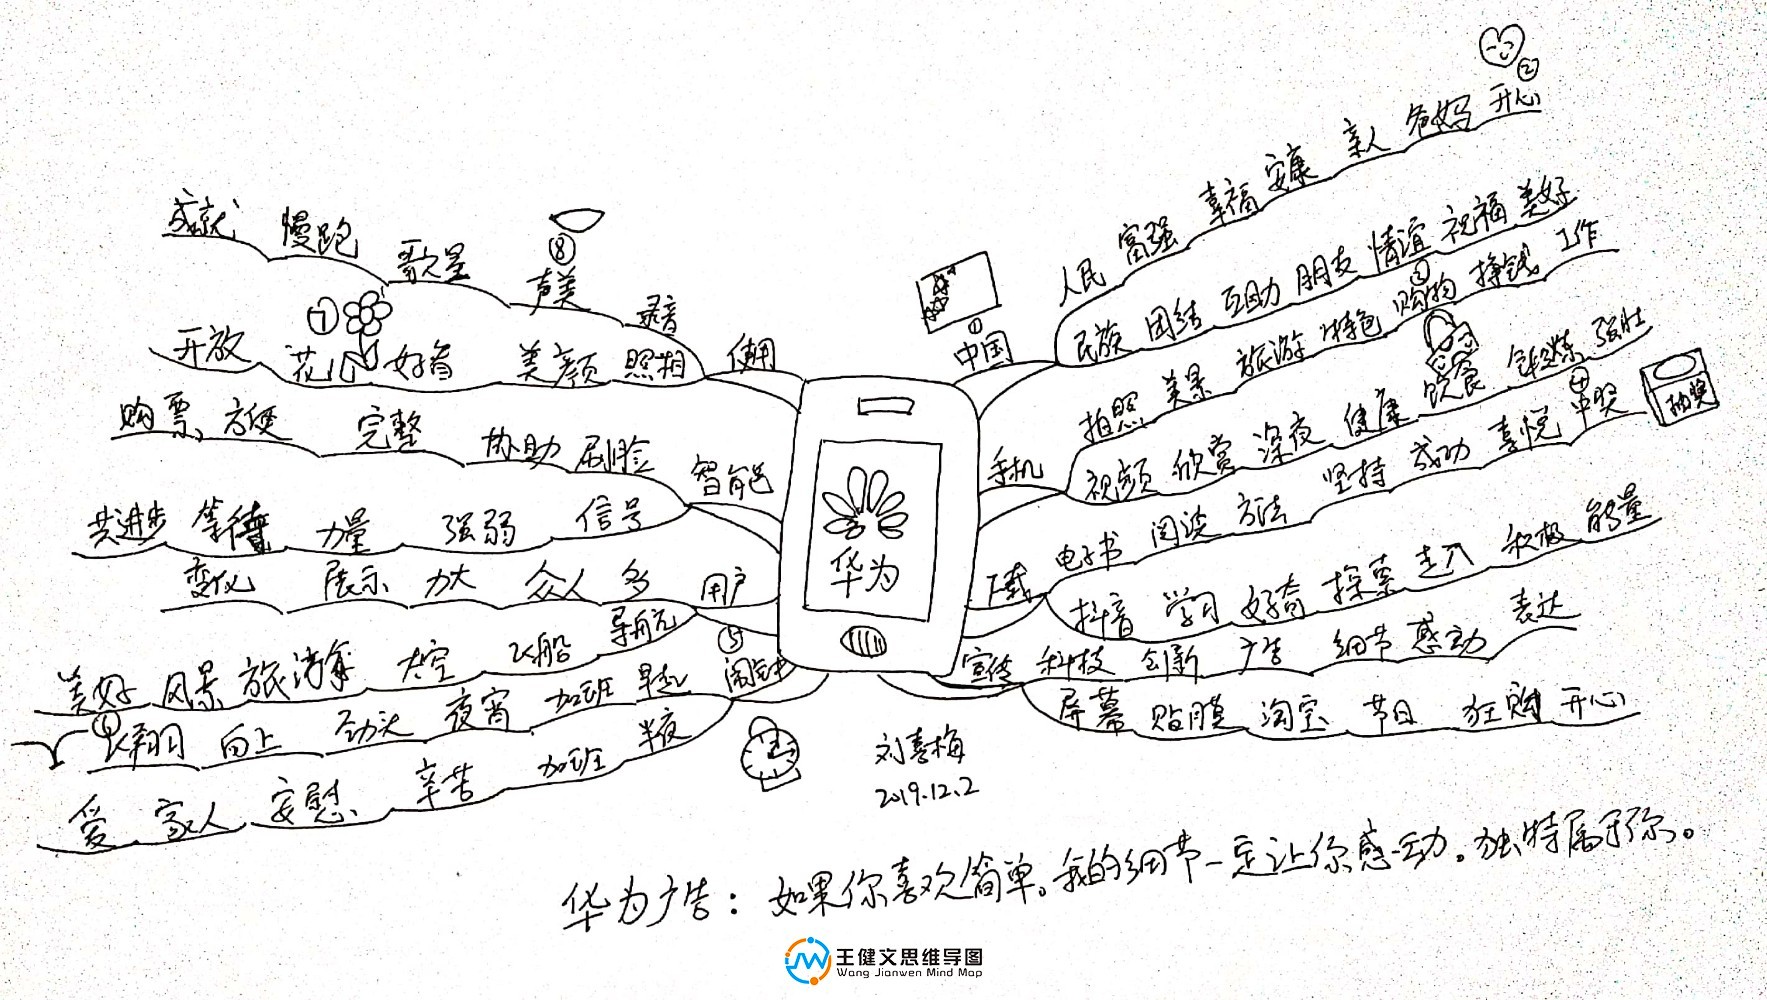 华为
①
中国
人民 富强 幸福 安康 亲人 爸妈 开心
②
民族 团结 互助 朋友 情谊 祝福 美好
手机
拍照 美景 旅游 特色 购物 挣钱 工作
③
视频 欣赏 深夜 健康 饮食 锻炼 强壮
下载
电子书 阅读 方法 坚持 成功 喜悦 中奖
④
抽奖
抖音 学习 好奇 探索 走入 积极 能量
宣传
科技 创新 广告 细节 感动 表达
屏幕 贴膜 淘宝 节日 狂购 开心
⑤
闹钟
半夜 加班 辛苦 安慰 家人 爱
早起 加班 夜宵 劲头 向上 飞翔
⑥
用户
导航 飞船 太空 旅游 风景 美好
多 众人 力大 展示 变化
智能
信号 强弱 力量 等待 共进步
刷脸 协助 完整 方便 购票
使用
照相 美颜 好看 花儿 开放
⑦
录音 声美 歌星 慢跑 成就
⑧
刘喜梅
2019.12.2
华为广告：如果你喜欢简单。我的细节一定让你感动。独特属于你。
王健文思维导图
Wang Jianwen Mind Map